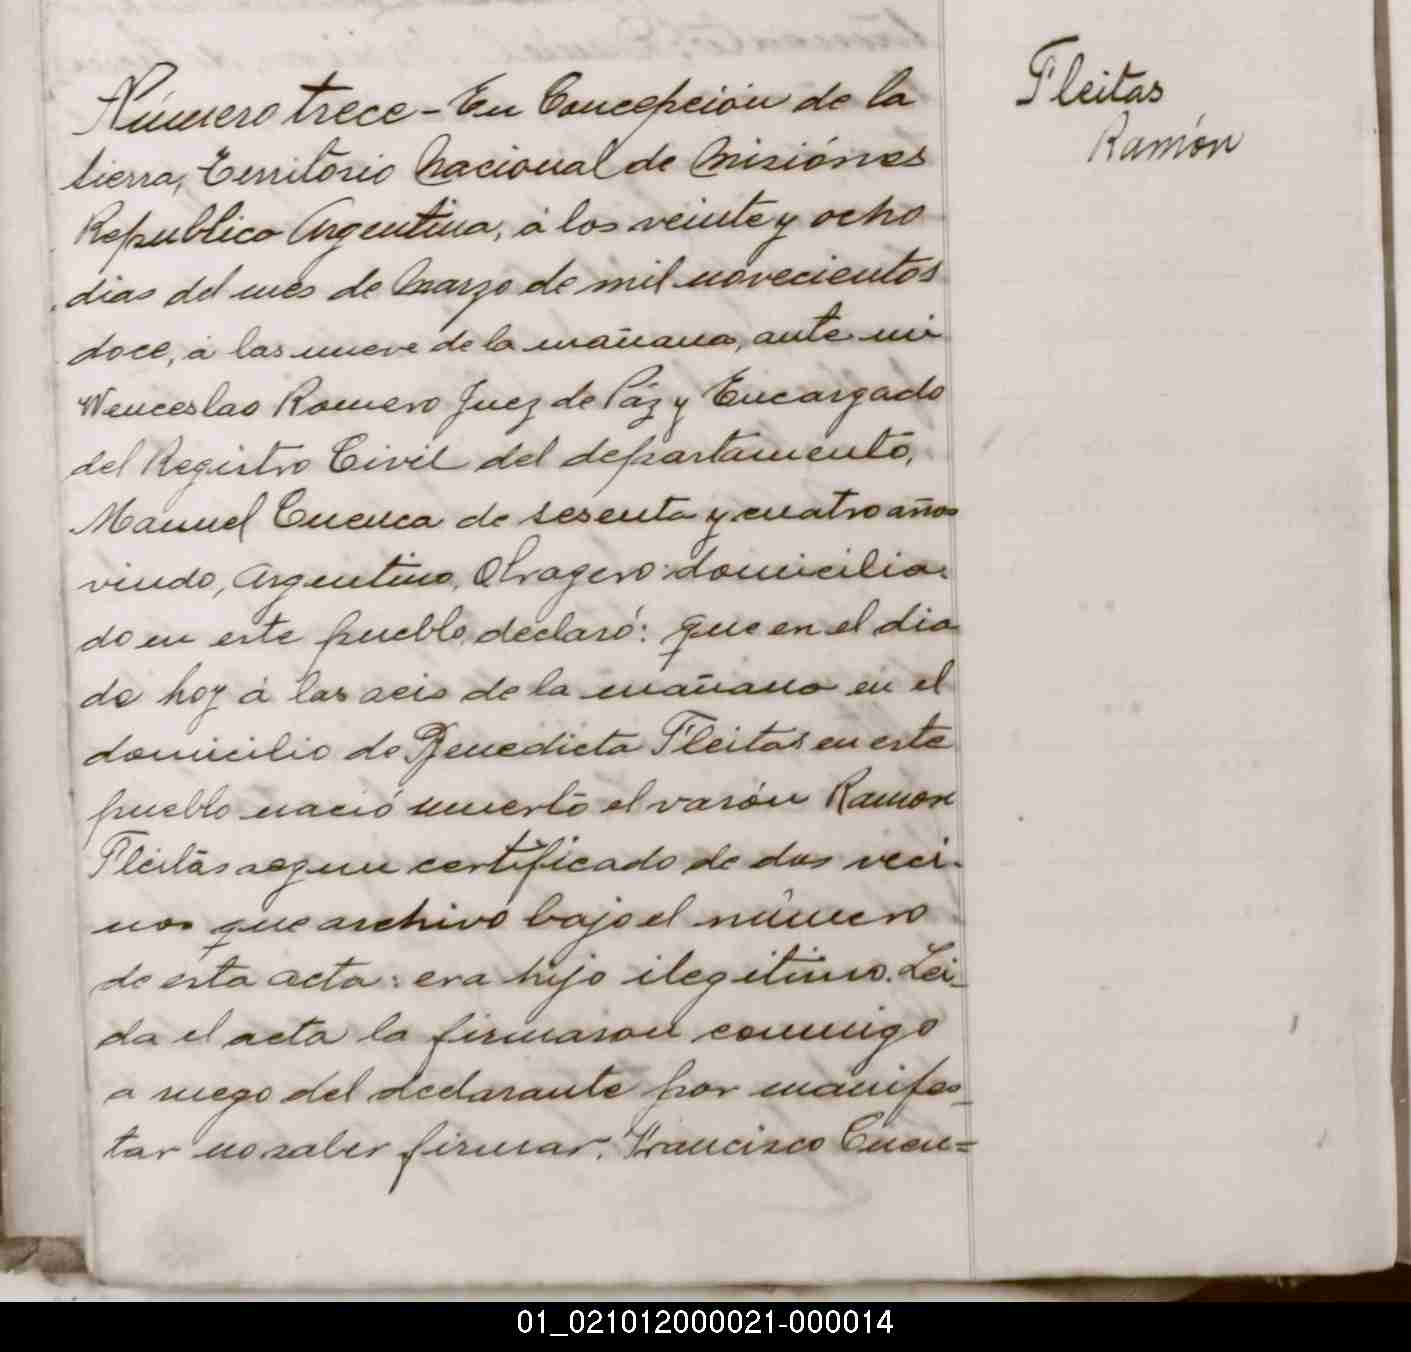 Número trece - En Concepción de la
sierra, Territorio Nacional de Misiónes
Republica Argentina, á los veinte y ocho
dias del mes de Marzo de mil novecientos
doce, á las nueve de la mañana, ante mi
Wenceslao Romero Juez de Páz y Encargado
del Registro Civil del departamento,
Manuel Cuenca de sesenta y cuatro años
viudo, Argentino, Obragero domicilia-
do en este pueblo, declaró: que en el dia
de hoy á las seis de la mañana en el
domicilio de Benedicta Fleitas en este
pueblo nació muerto el varón Ramon
Fleitas segun certificado de dos veci-
nos que archivo bajo el número
de esta acta: era hijo ilegitimo. Lei-
da el acta la firmaron conmigo
a ruego del declarante por manifes-
tar no saber firmar. Francisco Cuen=
Fleitas
Ramón
01_021012000021-000014